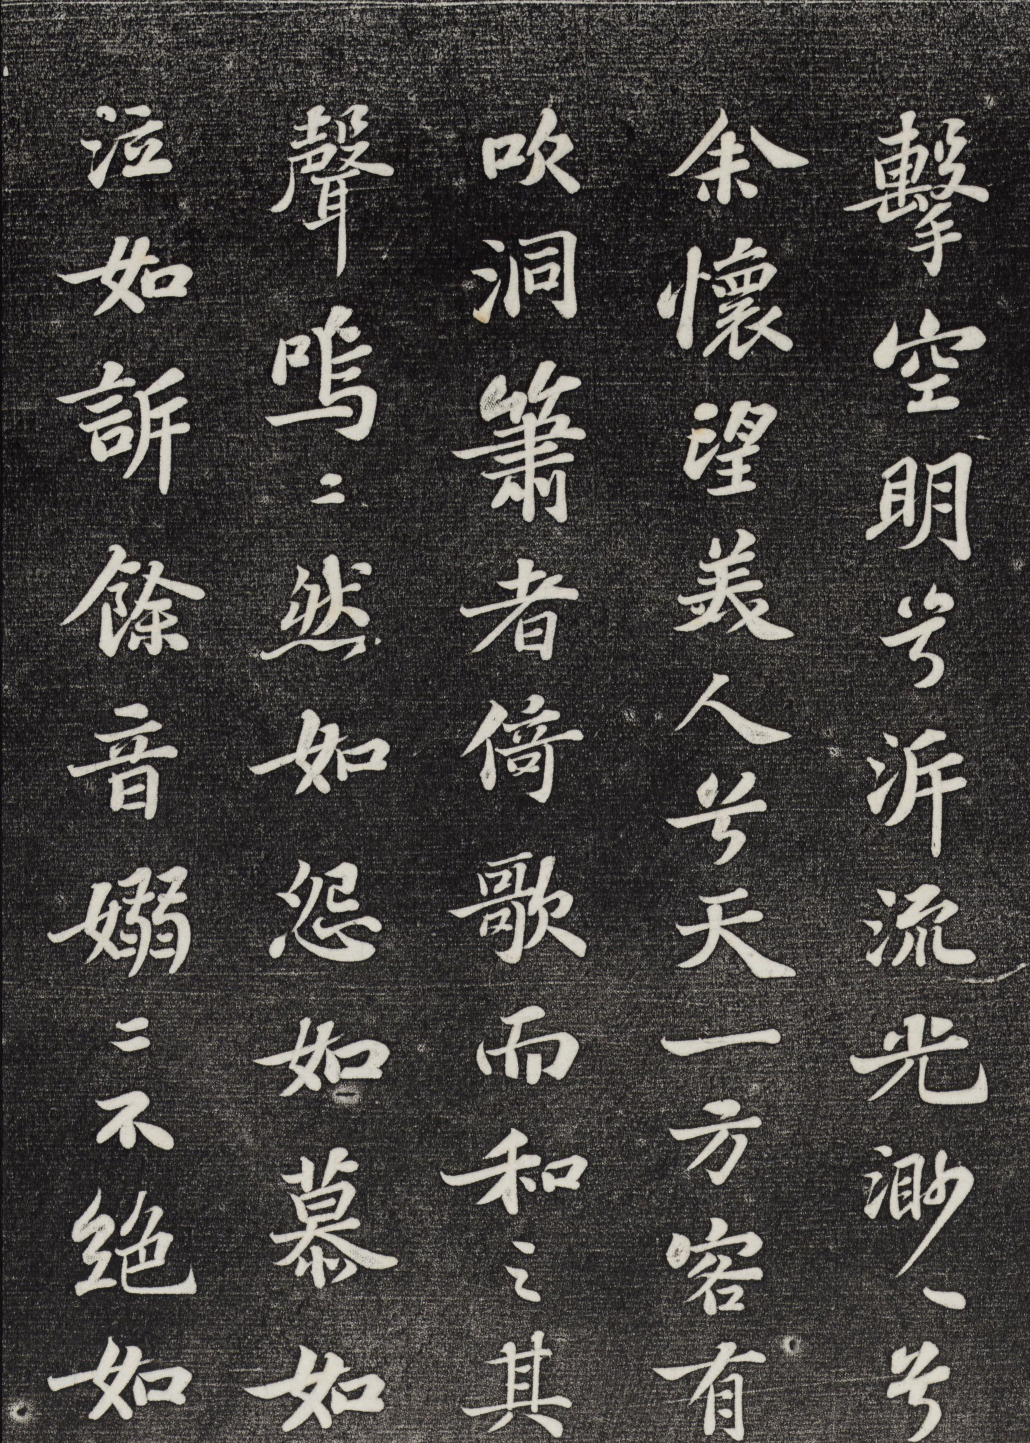 擊空明兮泝流光渺〻兮
余懷望美人兮天一方客有
吹洞簫者倚歌而和之其
聲嗚〻然如怨如慕如
泣如訴餘音嫋〻不絕如